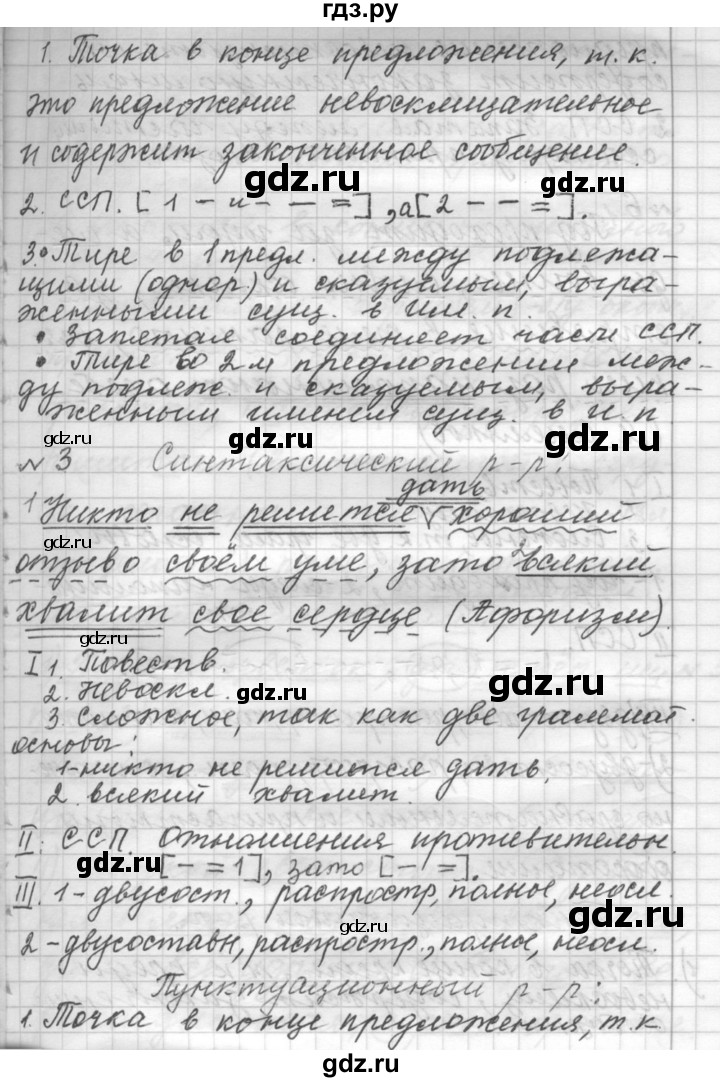 гдз.ру
1. Точка в конце предложения, т.к.
это предложение невосклицательное
и содержит законченное сообщение.
gdz.ru
2. ССП. [1 – и – – =], а [2 – – =].
gdz.ru
3. • Тире в 1 предл. между подлежа-
щими (однор.) и сказуемым, выра-
женными сущ. в им. п.
• Запятая соединяет части ССП.
• Тире во 2м предложении меж-
ду подлеж. и сказуемым, выра-
женным именем сущ. в и. п
gdz.ru
№3 Синтаксический р-р.
дать
1 Никто не решится √ хороший
gdz.ru
отзыв о своём уме, зато 2 всякий
хвалит свое сердце (Афоризм).
gdz.ru
I 1. Повеств.
2. Невоскл.
gdz.ru gdz.ru
3. Сложное, так как две граммат.
основы:
1- никто не решится дать,
gdz.ru
2. всякий хвалит.
II. ССП. Отношения противительн.
gdz.ru
[– = 1], зато [– =].
III. 1- двусост., распростр, полное, неосл.
gdz.ru
2 - двусоставн, распростр., полное, неосл.
Пунктуационный р-р:
gdz.ru
1. Точка в конце предложения, т.к
gdz.ru